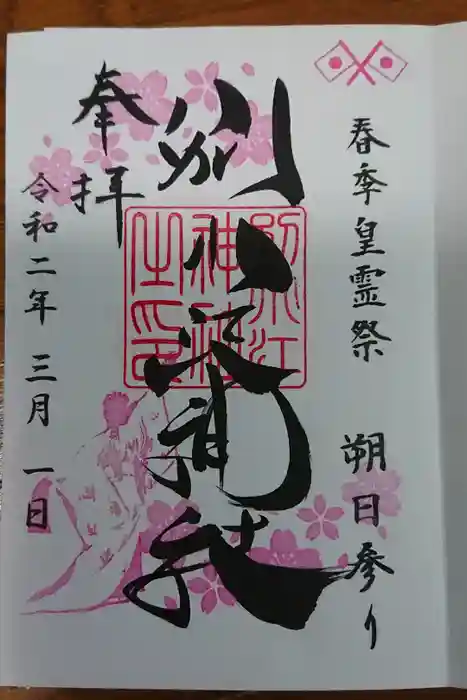 春季皇霊祭 朔日参り
別小江神社
奉拝
令和二年 三月 一日
別小江
神社
之印